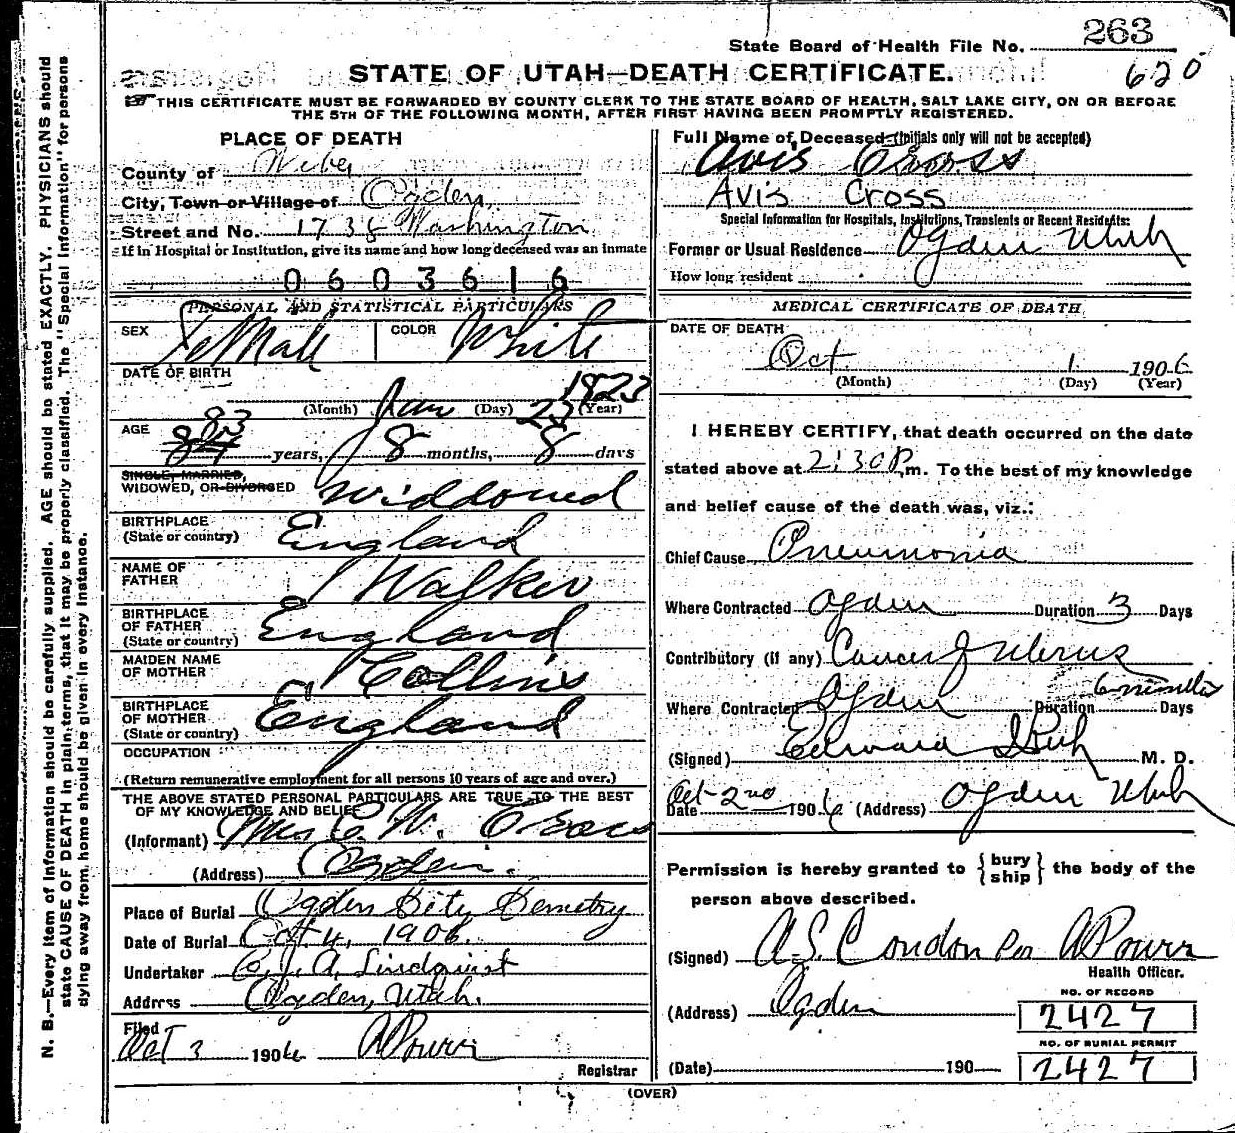 263
State Board of Health File No.
620
STATE OF UTAH—DEATH CERTIFICATE.
THIS CERTIFICATE MUST BE FORWARDED BY COUNTY CLERK TO THE STATE BOARD OF HEALTH, SALT LAKE CITY, ON OR BEFORE
THE 5TH OF THE FOLLOWING MONTH, AFTER FIRST HAVING BEEN PROMPTLY REGISTERED.
N. B.—Every item of information should be carefully supplied. AGE should be stated EXACTLY. PHYSICIANS should
state CAUSE OF DEATH in plain terms, that it may be properly classified. The "Special Information" for persons
dying away from home should be given in every instance.
PLACE OF DEATH
County of Weber
City, Town or Village of Ogden,
Street and No. 1738 Washington
If in Hospital or Institution, give its name and how long deceased was an inmate
0603616
PERSONAL AND STATISTICAL PARTICULARS
SEX FeMale COLOR White
DATE OF BIRTH
1823
(Month) Jan (Day) 23 (Year)
83
AGE 84 years, 8 months, 8 days
SINGLE, MARRIED,
WIDOWED, OR DIVORCED Widdowed
BIRTHPLACE
(State or country) England
NAME OF
FATHER Walker
BIRTHPLACE
OF FATHER
(State or country) England
MAIDEN NAME
OF MOTHER Collins
BIRTHPLACE
OF MOTHER
(State or country) England
OCCUPATION
(Return remunerative employment for all persons 10 years of age and over.)
THE ABOVE STATED PERSONAL PARTICULARS ARE TRUE TO THE BEST
OF MY KNOWLEDGE AND BELIEF
(Informant) Mrs C. W. Cross
(Address) Ogden.
Place of Burial Ogden City Cemetry
Date of Burial Oct 4, 1906.
Undertaker C. J. A. Lindquist
Address Ogden, Utah.
Filed
Oct 3 1906 A Powers
Registrar
Full Name of Deceased (Initials only will not be accepted)
Avis Cross
Avis Cross
Special Information for Hospitals, Institutions, Transients or Recent Residents:
Former or Usual Residence Ogden Utah
How long resident
MEDICAL CERTIFICATE OF DEATH
DATE OF DEATH
Oct 1 1906
(Month) (Day) (Year)
I HEREBY CERTIFY, that death occurred on the date
stated above at 2:30 P.m. To the best of my knowledge
and belief cause of the death was, viz.:
Chief Cause Pneumonia
Where Contracted Ogden Duration 3 Days
Contributory (if any) Cancer of Uterus
Where Contracted Ogden Duration 6 months Days
(Signed) Edward I Rich M. D.
Date Oct 2nd 1906 (Address) Ogden Utah
Permission is hereby granted to {bury ship} the body of the
person above described.
(Signed) A. S. Condon Per A Powers
Health Officer.
(Address) Ogden
NO. OF RECORD
2427
NO. OF BURIAL PERMIT
(Date) 190 2427
(OVER)